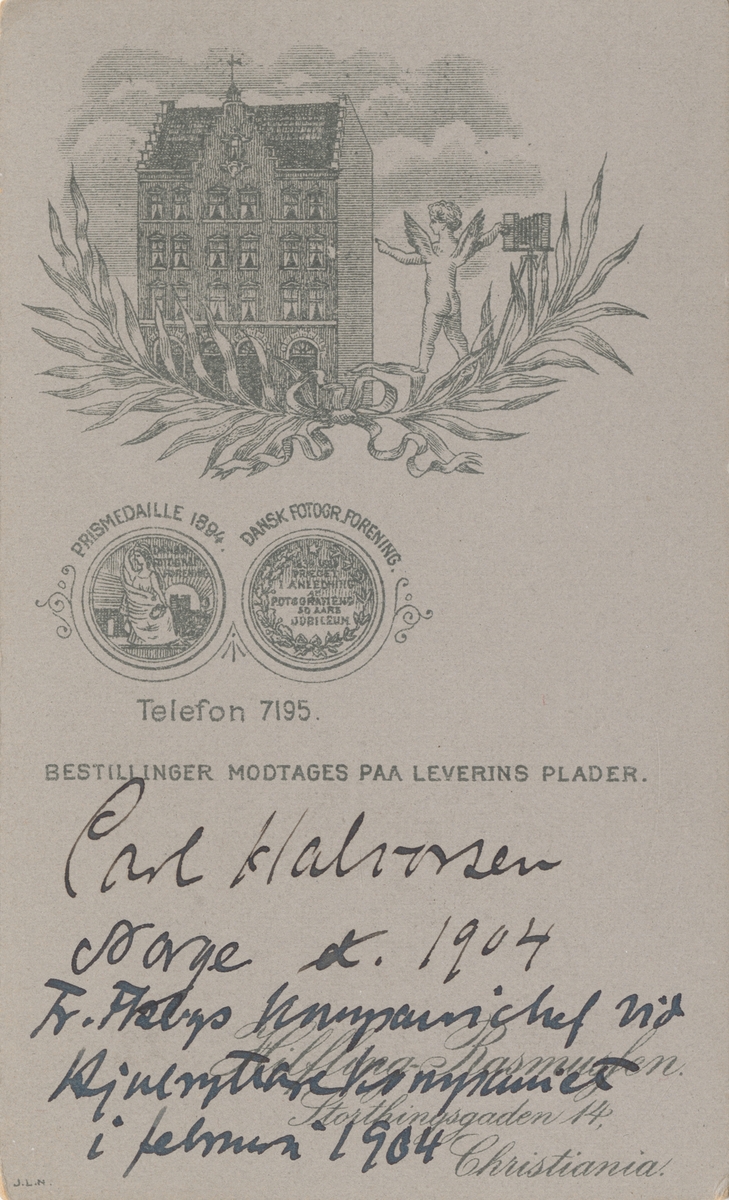 PRISMEDAILLE 1894.
DANSK FOTOGR. FORENING.
DANSK
FOTOGRAF
FORENING
1839 1889
PRÆGET
I ANLEDNING
AF
FOTOGRAFIENS
50 AARS
JUBILÆUM
Telefon 7195.
BESTILLINGER MODTAGES PAA LEVERINS PLADER.
Carl Halvorsen
Norge d. 1904
Fr. kompanichef vid
Hjulryttarekompaniet
i februari 1904
Hilfling-Rasmussen.
Storthingsgaden 14,
Christiania.
J.L.N.